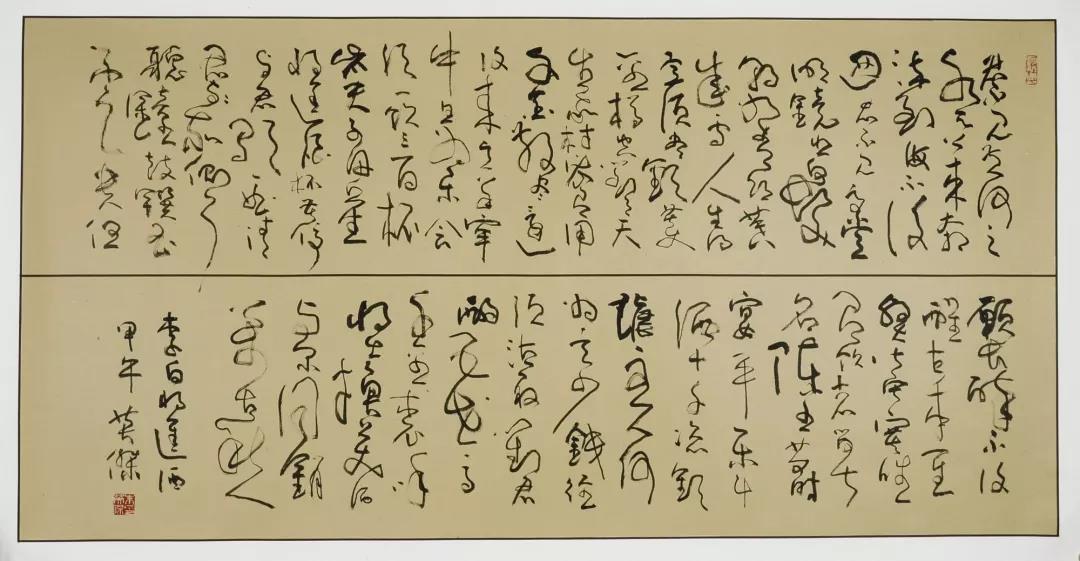 君不見黃河之
水天上來奔
流到海不復
回君不見高堂
明鏡悲白髮
朝如青絲暮
成雪人生得
意須盡歡莫
使金樽空對月天
生我材必有用
千金散盡還
復來烹羊宰
牛且為樂會
須一飲三百杯
岑夫子丹丘生
將進酒杯莫停
與君歌一曲請
君為我傾耳
聽鐘鼓饌玉
不足貴但
願長醉不復
醒古來聖
賢皆寂寞惟
有飲者留其
名陳王昔時
宴平樂斗
酒十千恣歡
謔主人何
為言少錢徑
須沽取對君
酌五花馬
千金裘呼
兒將出換美酒
與爾同銷
萬古愁
李白將進酒
甲午 英傑